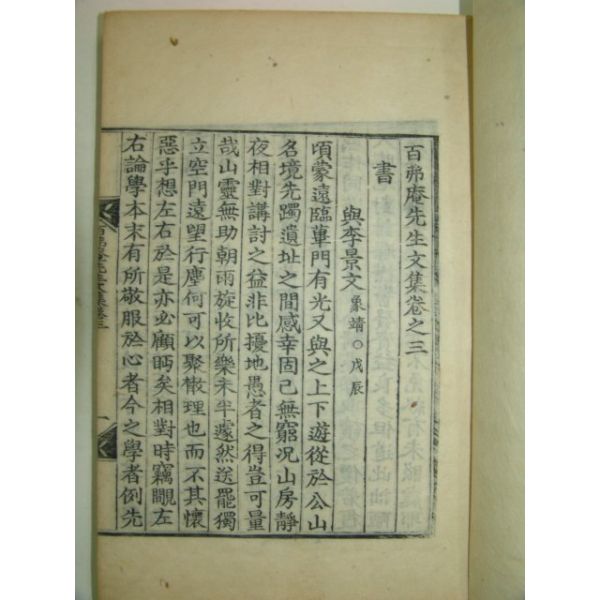 百弗庵先生文集卷之三
書
與李景文象靖○戊辰
頃蒙遠臨蓽門有光又與之上下遊從於公山
名境先躅遺址之間感幸固已無窮况山房靜
夜相對講討之益非比擾地愚者之得豈可量
哉山靈無助朝雨旋收所樂未半遽然送罷獨
立空門遠望行塵何可以聚散理也而不其懷
惡乎想左右於是亦必顧眄矣相對時竊覸左
右論學本末有所敬服於心者今之學者例先
百弗庵先生文集卷三
一